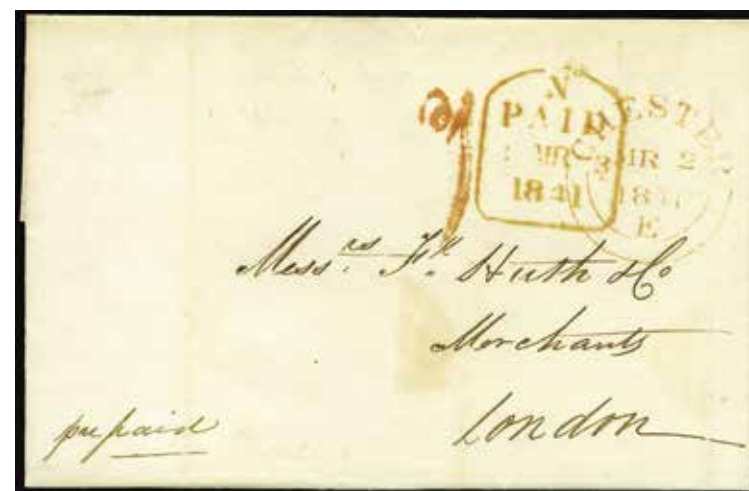 N
PAID
MR 3
1841
CHESTER
MR 2
1841
E
Messrs. Fk. Huth & Co
Merchants
London
prepaid